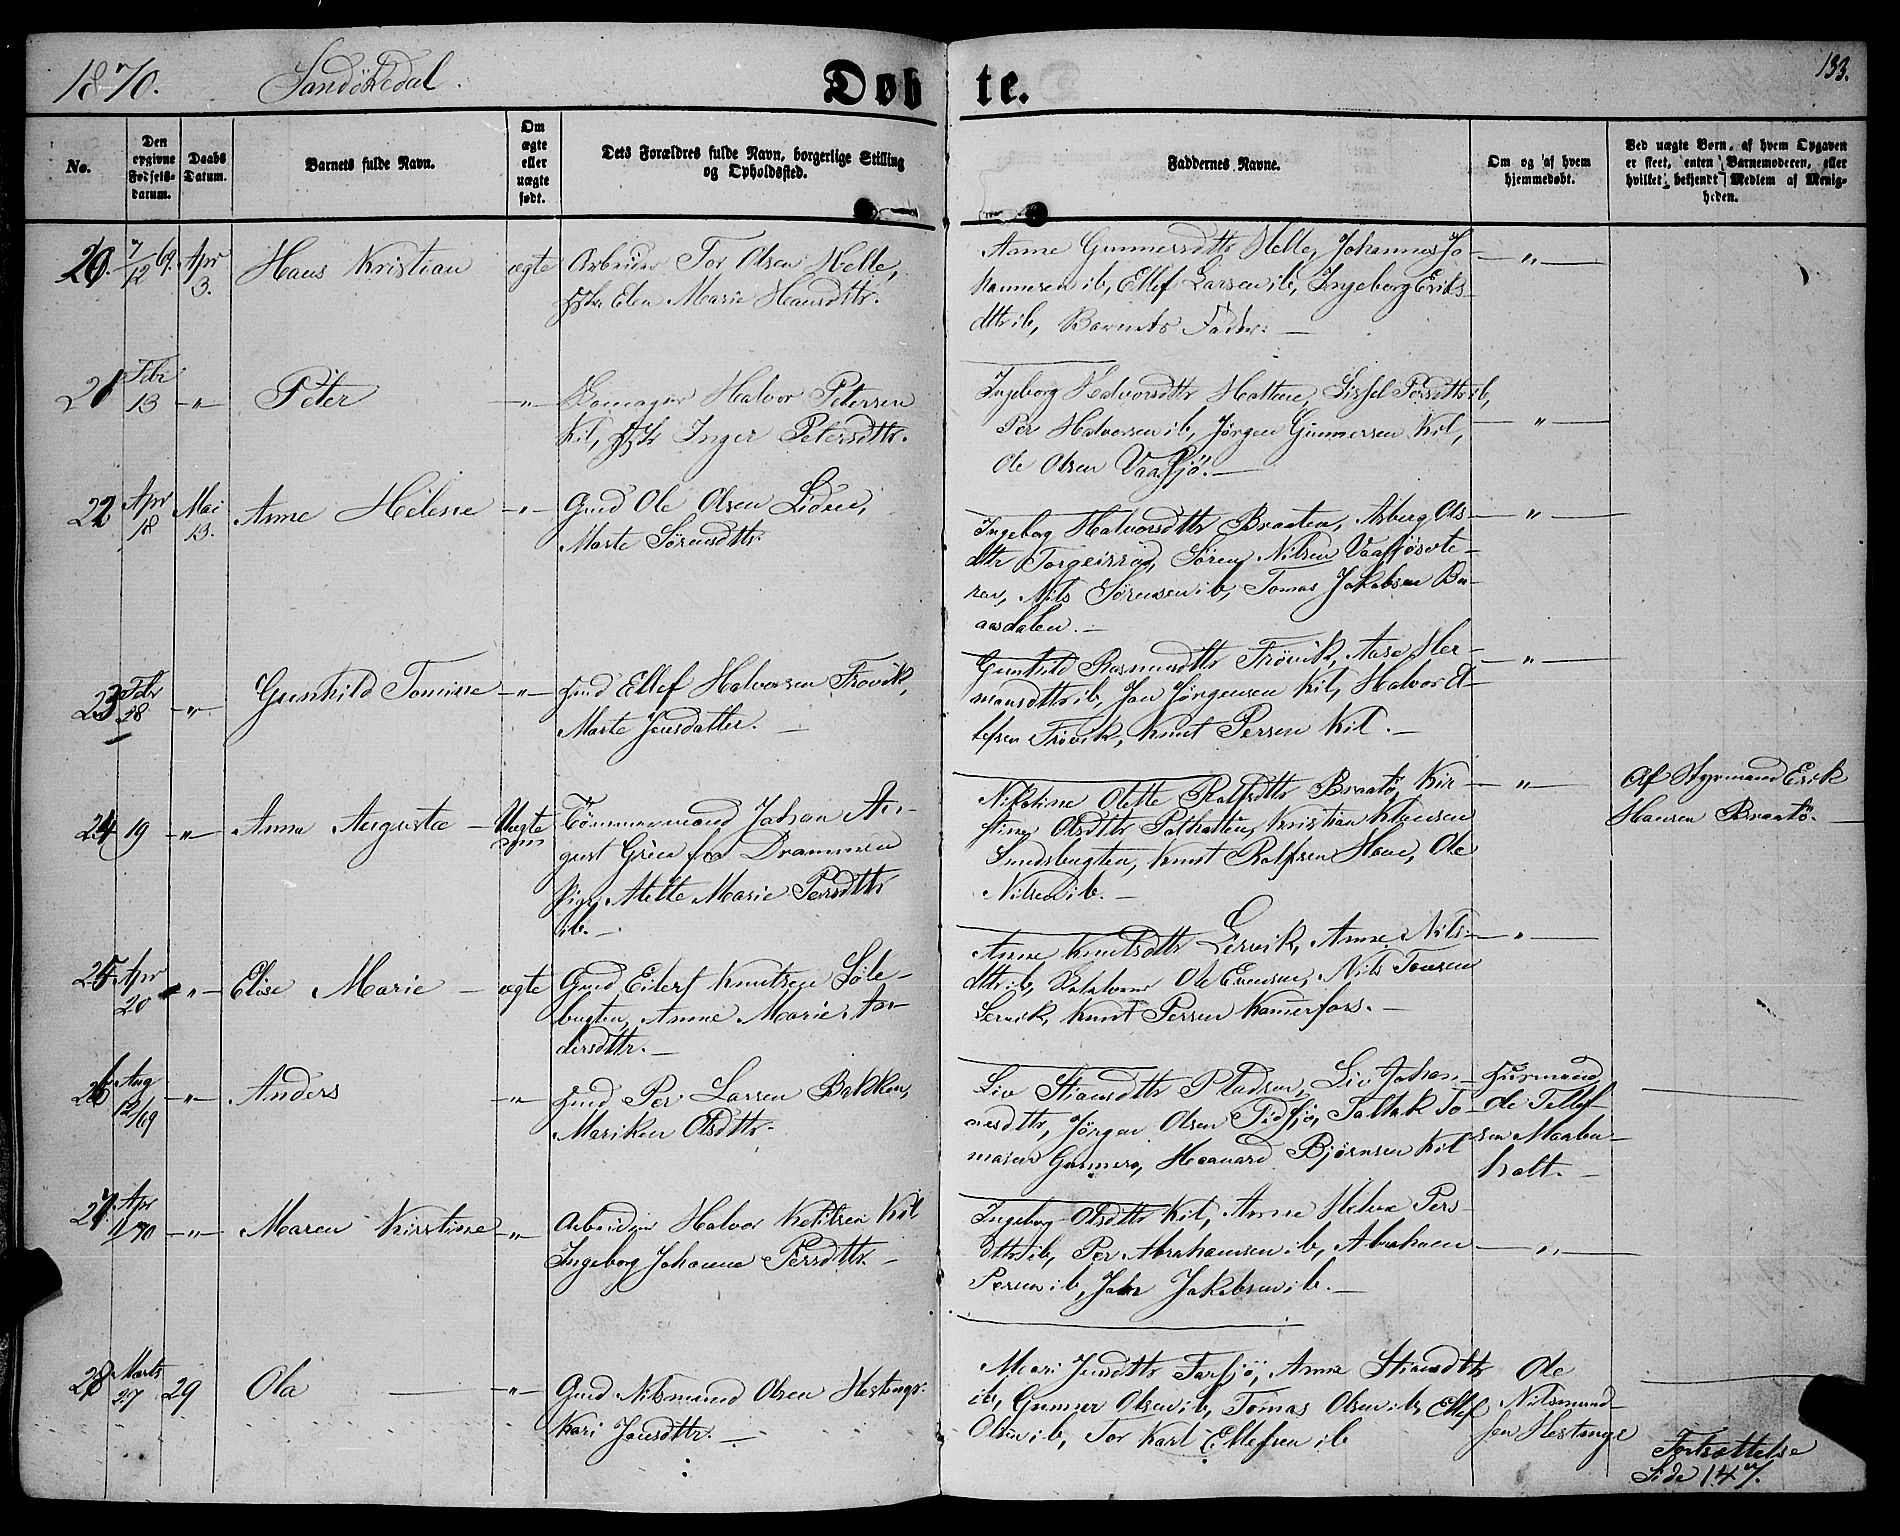 1870. Sandökedal. Døbte. 133.
No.
Den opgivne Fødsels-datum.
Daabs Datum.
Barnets fulde Navn.
Om ægte eller uægte født.
Dets Forældres fulde Navn, borgerlige Stilling og Opholdssted.
Faddernes Navne.
Om og af hvem hjemmedøbt.
Ved uægte Børn, af hvem Opgaven er skeet, enten Barnemoderen, eller hvilket bekjendt Medlem af Menigheden.
20. 7/12 69. Apr 3. Hans Kristian ægte
Arbeider Tor Olsen Helle,
Elen Marie Hansdttr.
Anne Gunnersdttr Helle, Johannes Jo-
hannesen ib, Ellef Larsen ib, Ingeborg Eriks-
dttr ib, Barnets Fader. —
— " —
21 Febr 13 — " — Peter — " —
Halvor Petersen
Kil, Inger Petersdttr.
Ingeborg Halvorsdttr Hattene, Sissel Torsdttr ib,
Per Halvorsen ib, Jörgen Gunnersen Kil,
Ole Olsen Vaasjö. —
— " —
22 Apr 18 Mai 13. Anne Helene — " —
Gmd Ole Olsen Lidne,
Marte Sörensdttr.
Ingeborg Halvorsdttr Braaten, Asberg Ols-
dttr Torgeirröd, Sören Nilsen Vaasjösete-
ren, Nils Sörensen ib, Tomas Jakobsen Ba-
asdalen. —
— " —
23 Febr 18 — " — Gunhild Tomine — " —
Hmd Ellef Halvorsen Frövik,
Marte Jensdatter. —
Gunhild Rasmusdttr Frövik, Aase Her-
mansdttr ib, Jan Jörgensen Kil, Halvor El-
lefsen Frövik, Knut Persen Kil. —
— " —
24 19 — " — Anna Augusta — Uægte
Tömmermand Johan Au-
gust Grüe fra Drammen
Pige Mette Marie Persdttr
ib. —
Nikoline Olette Rolfsdttr Braatö, Kir-
stine Olsdttr Kristian Klausen
Sundsbugten, Knut Rolfsen Stene, Ole
Nilsen ib. —
— " —
Af Styrmand Erik
Hansen Braatö. —
25 Apr 20 — " — Elise Marie — ægte
Gmd Eilert Knutsen Söle-
bugten, Anne Marie An-
dersdttr. —
Anne Knutsdttr Lervik, Anne Nils-
dttr ib, Ole Evensen, Nils Tonsen
Lervik, Knut Persen Kamerfos. —
— " —
26 Aug 12/69 — " — Anders — " —
Hmd Per Larsen Bakken,
Mariken Olsdttr.
Liv Stiansdttr Pladsen, Liv Johan-
nesdttr, Jörgen Olsen Tisjö, Taltak To-
masen Gunners, Haavard Björnsen Kil
Furmand
Ole Tellef-
sen Maaber-
holt. —
27. Apr 1/70 — " — Maren Kirstine — " —
Arbeider Halvor Ketilsen Kil
Ingeborg Johanne Persdttr. —
Ingeborg Olsdttr Kil, Anne Helve Pers-
dttr ib, Per Abrahamsen ib, Abraham
Persen ib, Jahn Jakobsen ib. —
— " —
28 Marts 27 29 Ola — — " —
Gmd Nilsmund Olsen Hestenge.
Kari Jensdttr. —
Mari Jensdttr Farsjö, Anne Stiansdttr
ib, Gunner Olsen ib, Tomas Olsen ib, Ellef
Olsen ib, Tor Karl Ellefsen ib
Ole
Nilsmund-
sen Hestenge
Fortsættelse
Side 147.